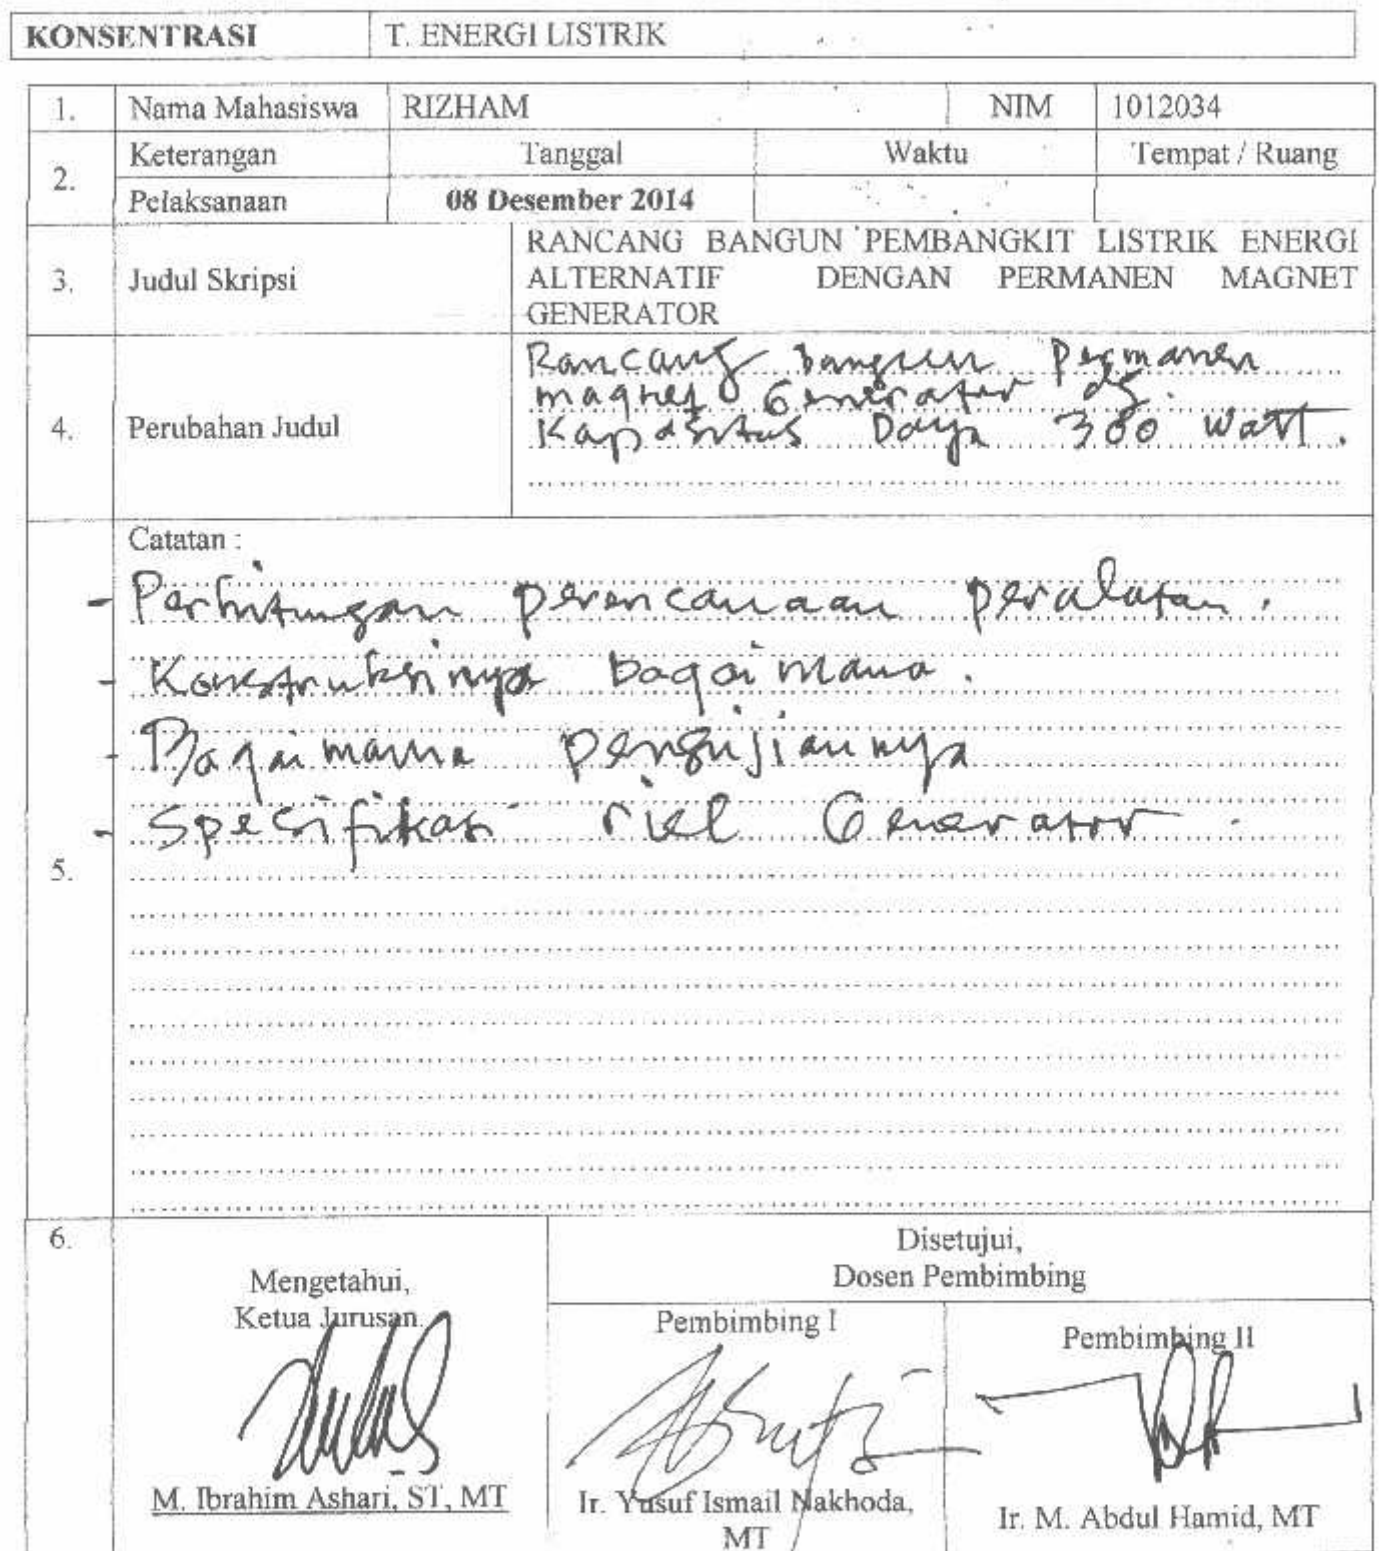 KONSENTRASI T. ENERGI LISTRIK
1. Nama Mahasiswa RIZHAM NIM 1012034
2. Keterangan Tanggal Waktu Tempat / Ruang
Pelaksanaan 08 Desember 2014
3. Judul Skripsi
RANCANG BANGUN PEMBANGKIT LISTRIK ENERGI
ALTERNATIF DENGAN PERMANEN MAGNET
GENERATOR
4. Perubahan Judul
Rancang bangun Permanen
magnet Generator dg.
Kapasitas Daya 300 Watt.
5.
Catatan :
- Perhitungan perencanaan peralatan.
- Konstruksinya bagaimana.
- Bagaimana pengujiannya
- Spesifikasi riel Generator.
6.
Mengetahui,
Ketua Jurusan
M. Ibrahim Ashari, ST, MT
Disetujui,
Dosen Pembimbing
Pembimbing I
Ir. Yusuf Ismail Nakhoda,
MT
Pembimbing II
Ir. M. Abdul Hamid, MT